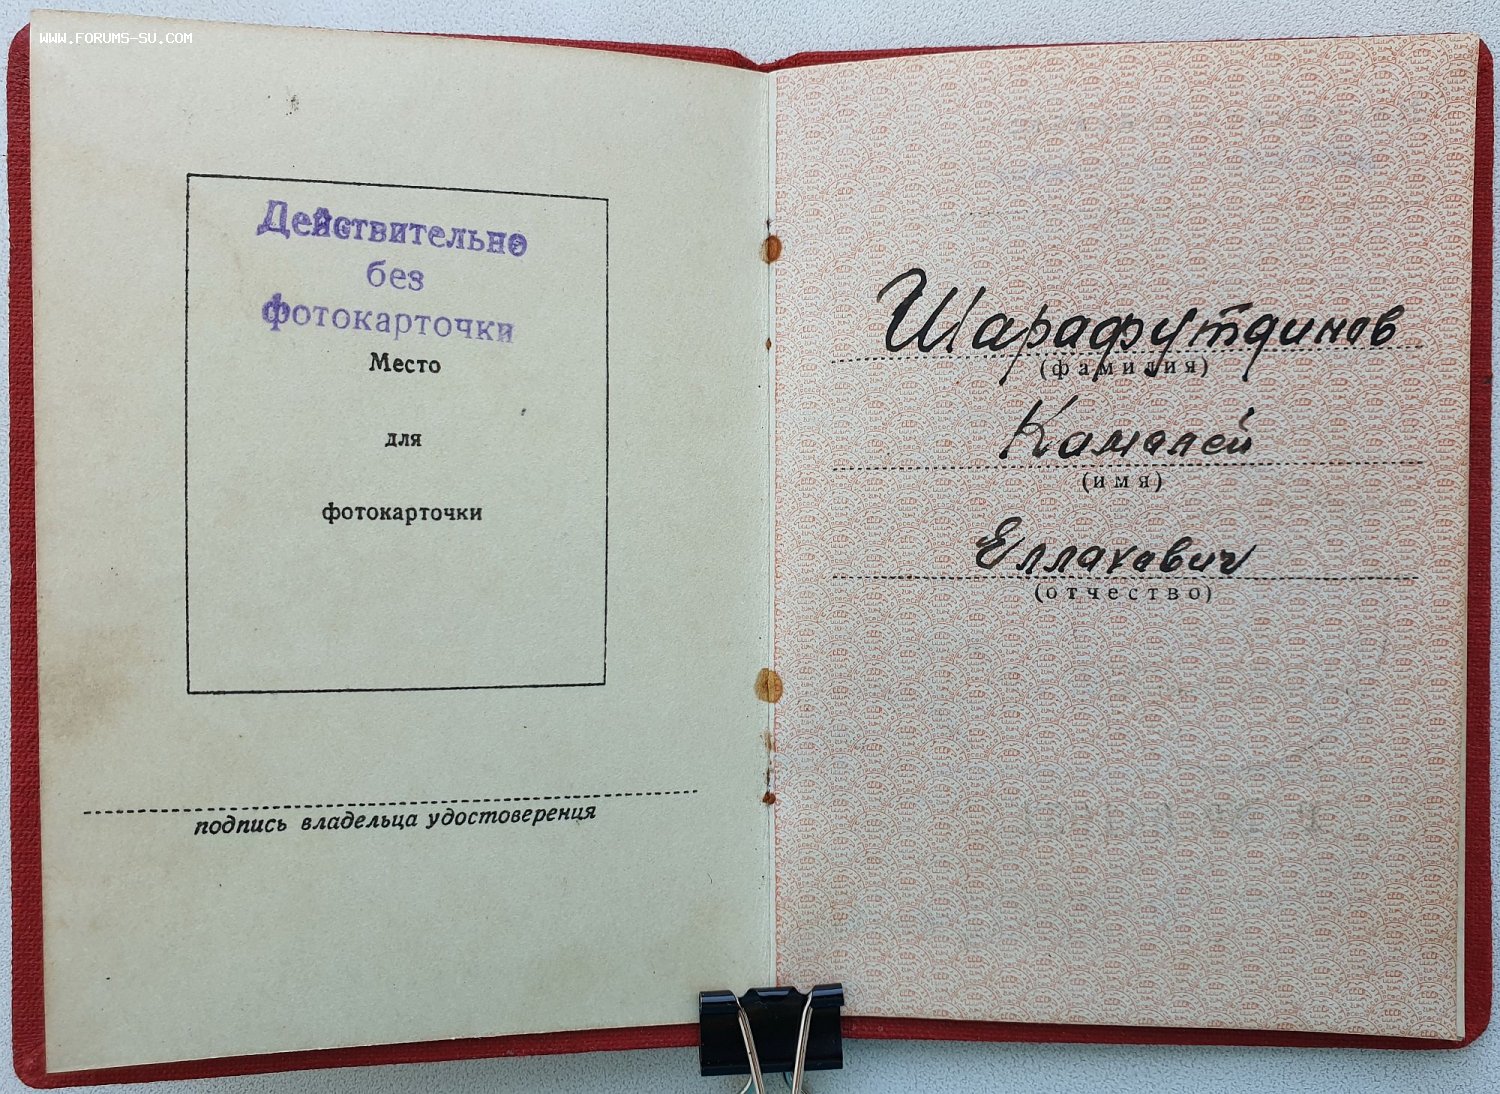 WWW.FORUMS-SU.COM
Действительно
без
фотокарточки
Место
для
фотокарточки
подпись владельца удостоверения
Шарафутдинов
(фамилия)
Камалей
(имя)
(отчество)